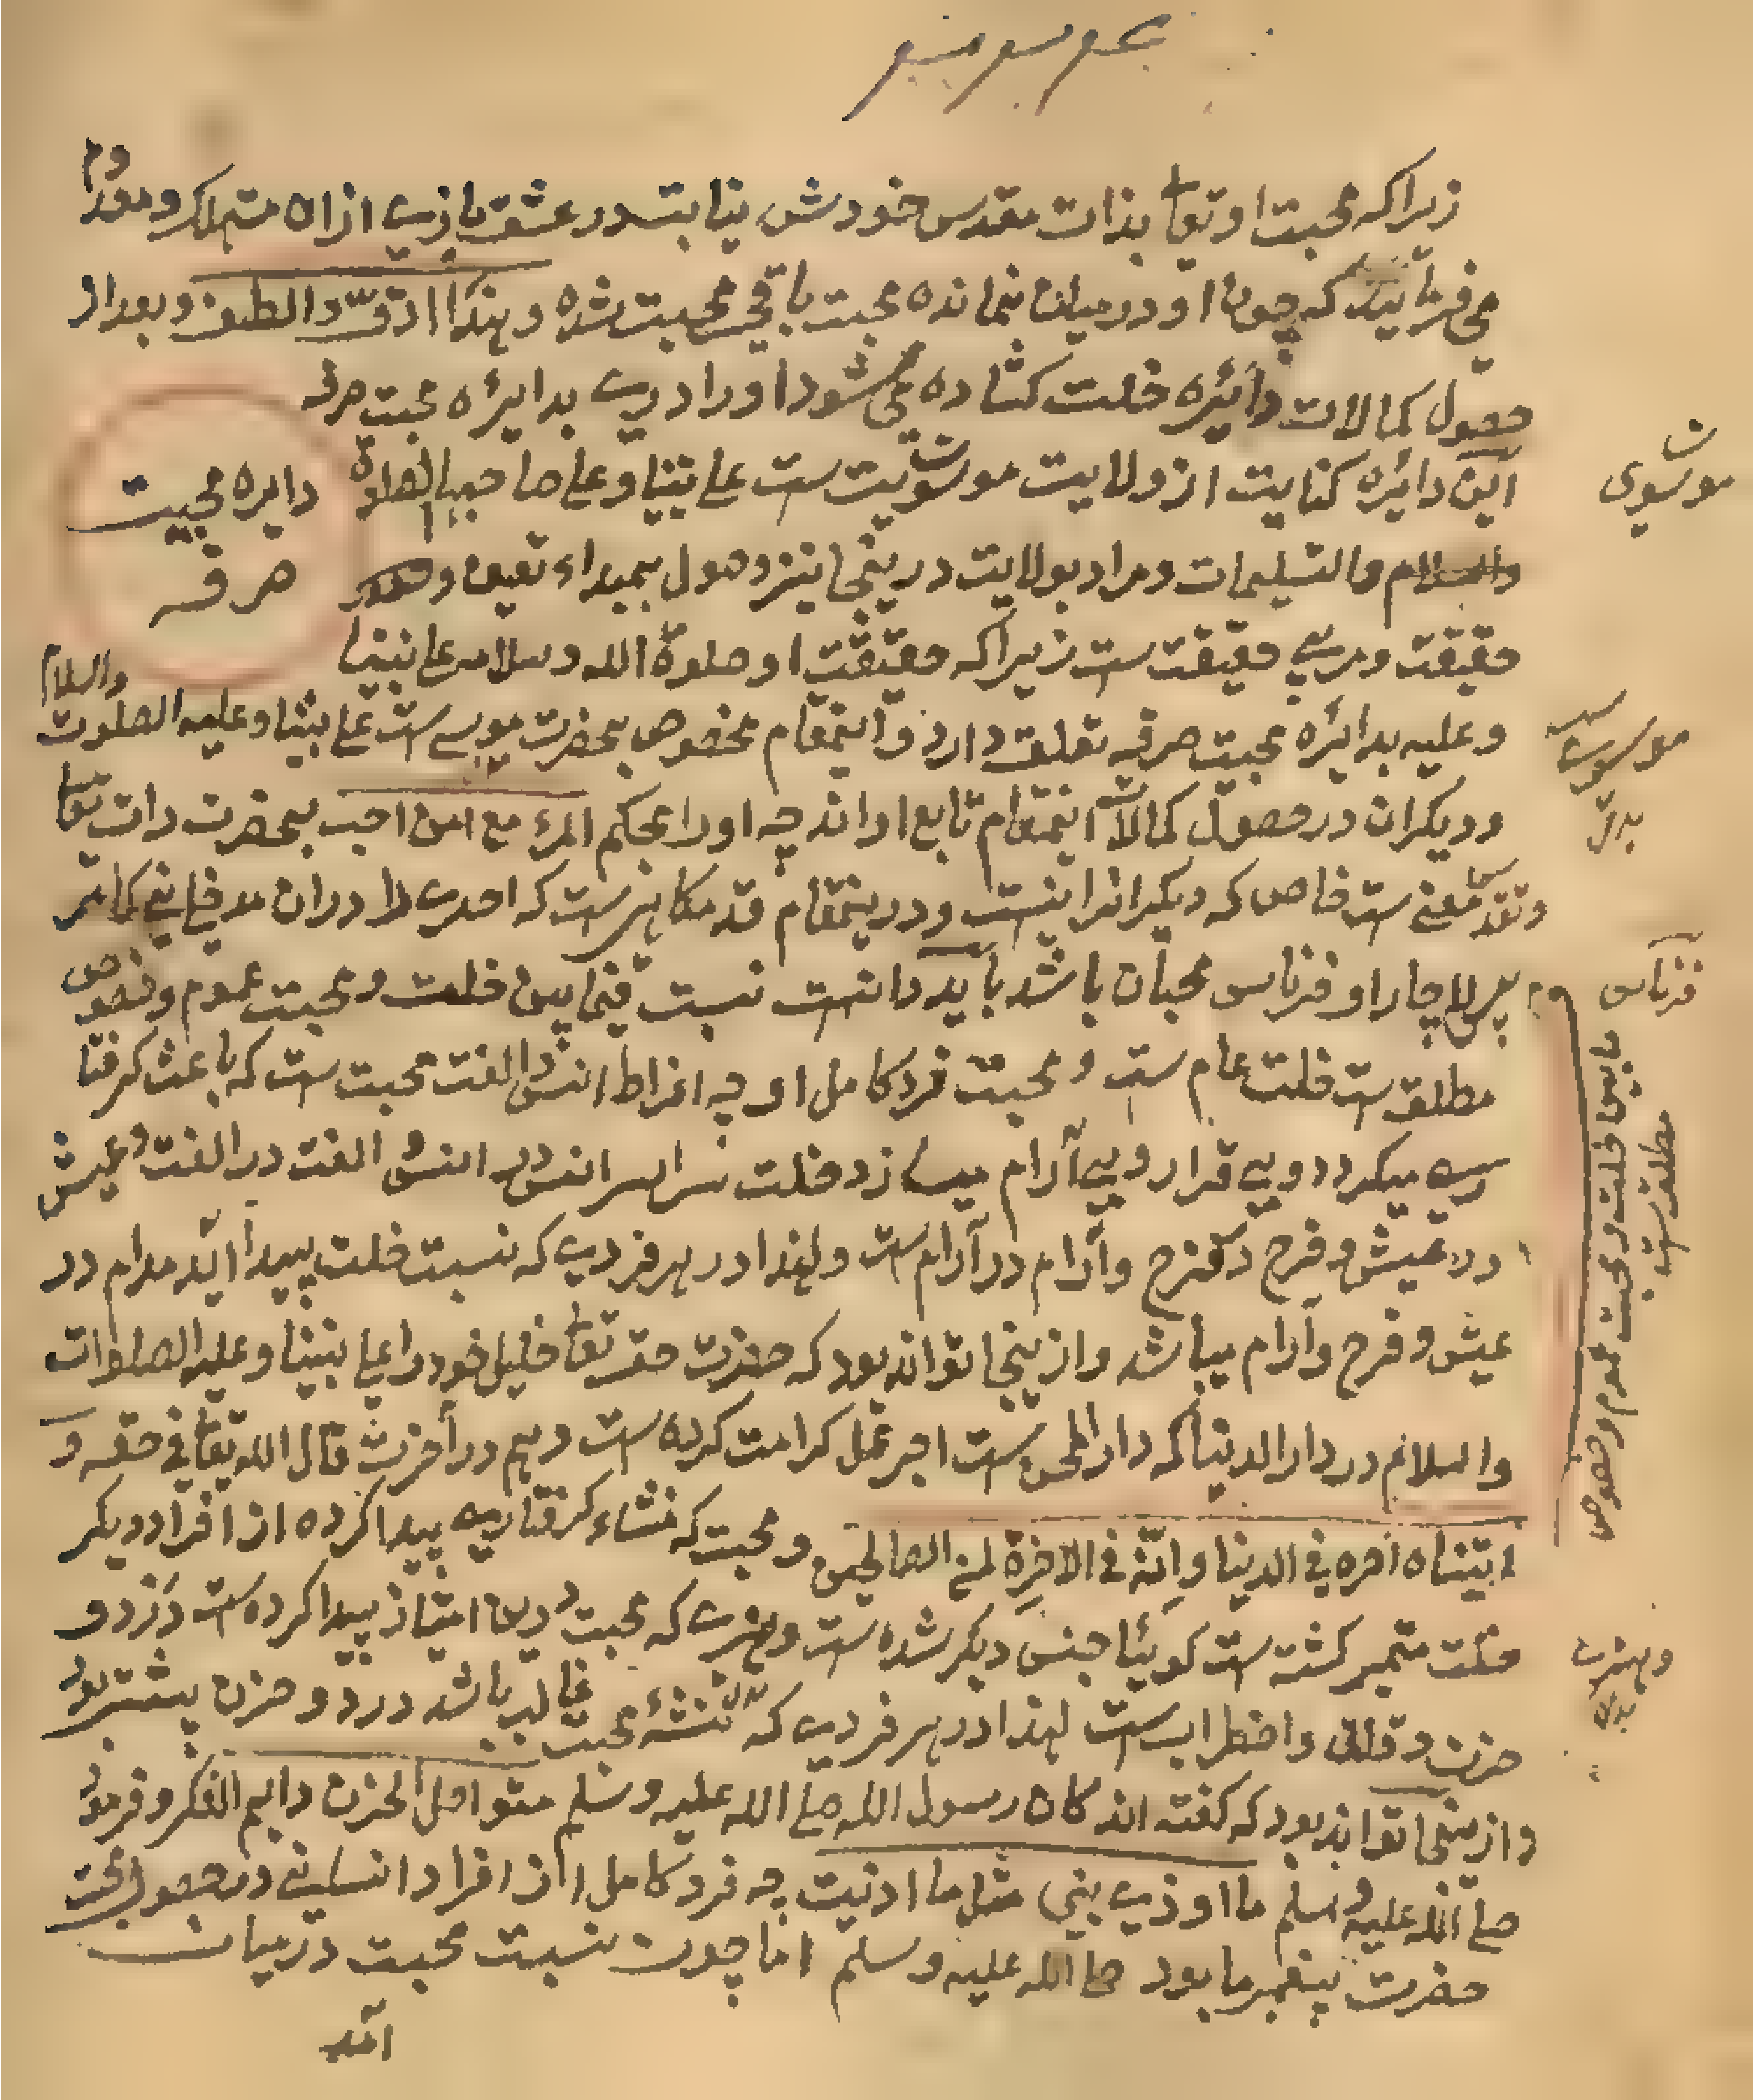 زیراکه محبت او تعا بذات مقدس خودش نیابت در عشق بازی ازان مستهلک و معدوم
می فرماید که چون او در میان نمانده محبت باقی محبت شده و هذا ادقّ والطف و بعد از
حصول کمالات دائره خلت کشاده می شود او را دری بدایره محبت صرفه
دایره محبت
صرفه
این دائره کنایت از ولایت موسویت ست علی نبینا و علی صاحبها الصلوة
والسلام والتسلیمات و مراد بولایت درینجا نیز وصول بمبداء تعین و
حقیقت و مربی حقیقت ست زیراکه حقیقت او صلوة الله وسلامه علی نبینا
وعلیه بدائره محبت صرفه تعلق دارد و اینمقام مخصوص بحضرت موسی ست علی نبینا وعلیه الصلوت والسلام
و دیکران در حصول کمالات اینمقام تابع او اند چه او را بحکم المرء مع من احب بحضرت ذات تعا
و تقدس معیتی ست خاص که دیکرانرا نیست و درینمقام قدمکاهیست که احدی را دران مدخلی نی
پس لاچار او فرمان محبان باشد باید دانست نسبت فیما بین خلت و محبت عموم و خصوص
مطلق ست خلت عام ست و محبت فرد کامل او چه افراط انس و الفت محبت ست که باعث کرفتا
ری میکردد و بی قرار و بی آرام میسازد خلت سراسر انس در انس و الفت در الفت و عیش
در عیش و فرح در فرح و آرام در آرام ست و لهذا در هر فردی که نسبت خلت پیدا آید مدام در
عیش و فرح و آرام میباشد و ازینجا تواند بود که حضرت حق تعا خلیل خود را علی نبینا وعلیه الصلوات
والسلام در دار الدنیا که دار المحن ست اجر عمل کرامت کرده ست و هم در آخرت قال الله تعا فی حقه و
اتیناه اجره فی الدنیا وانّه فی الاخرة لمن الصالحین و محبت که منشاء کرفتاری پیدا کرده از افراد دیکر
خلت متمیز کشته ست کوئیا جنس دیکر شده ست و هنری که محبت درین امتیاز پیدا کرده ست درد و
حزن و قلق و اضطراب ست لهذا در هر فردی که نشئهٔ محبت غالب باشد درد و حزن بیشتر بود
و ازینجا تواند بود که کفته اند کان رسول الله صلی الله علیه وسلم متواصل الحزن دایم الفکر و فرمود
صلی الله علیه وسلم ما اوذی نبی مثل ما اوذیت چه فرد کامل از افراد انسانی در حصول محبت
حضرت پیغمبر ما بود صلی الله علیه وسلم اما چون نسبت محبت در میان
آمد
موسوی
موسویت
بدل
مابین خلت و محبت عموم و خصوص
مطلق ست
و هنری
بدل